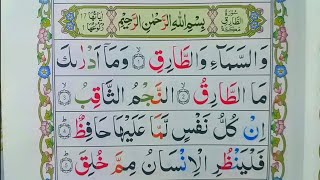 سُورَةُ الطَّارِقِ مَكِّيَّةٌ
بِسْمِ اللهِ الرَّحْمٰنِ الرَّحِيْمِ
وَالسَّمَآءِ وَالطَّارِقِ ۙ وَمَآ اَدْرٰىكَ
مَا الطَّارِقُ ۙ النَّجْمُ الثَّاقِبُ ۙ
اِنْ كُلُّ نَفْسٍ لَّمَّا عَلَيْهَا حَافِظٌ ؕ
فَلْيَنْظُرِ الْاِنْسَانُ مِمَّ خُلِقَ ؕ